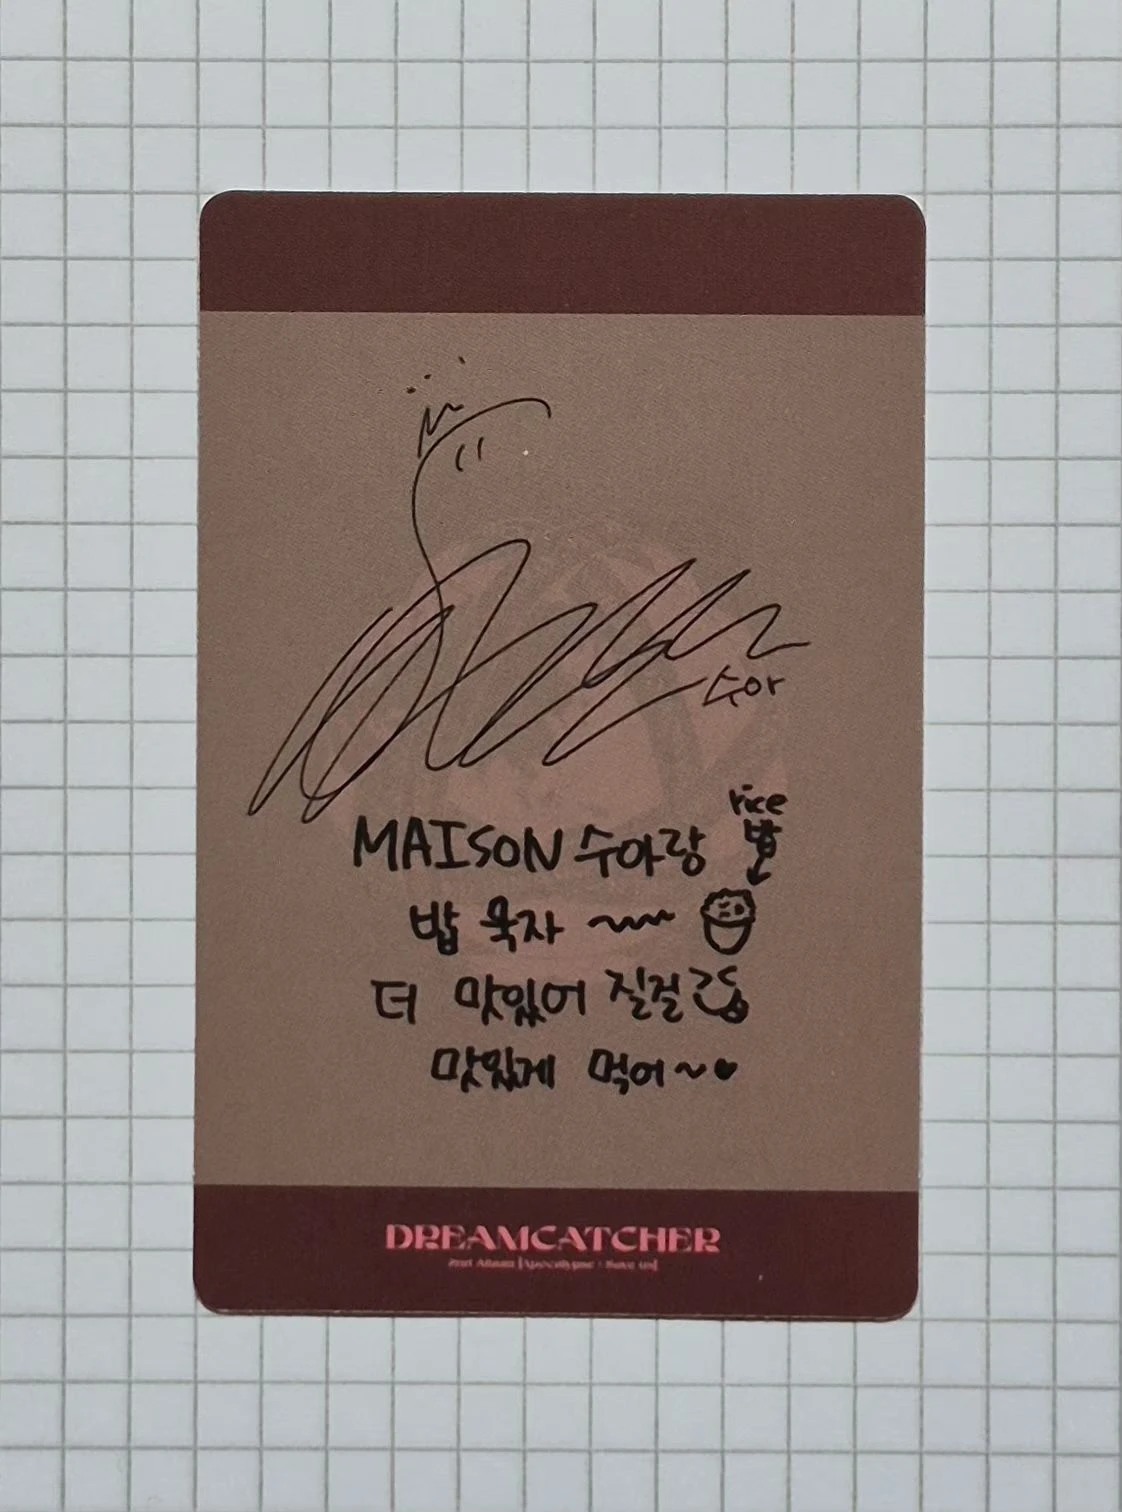 수아
rice
밥
MAISON 수아랑
밥 묵자 ~
더 맛있어 질걸
맛있게 먹어~♥
DREAMCATCHER
2nd Album [Apocalypse : Save us]